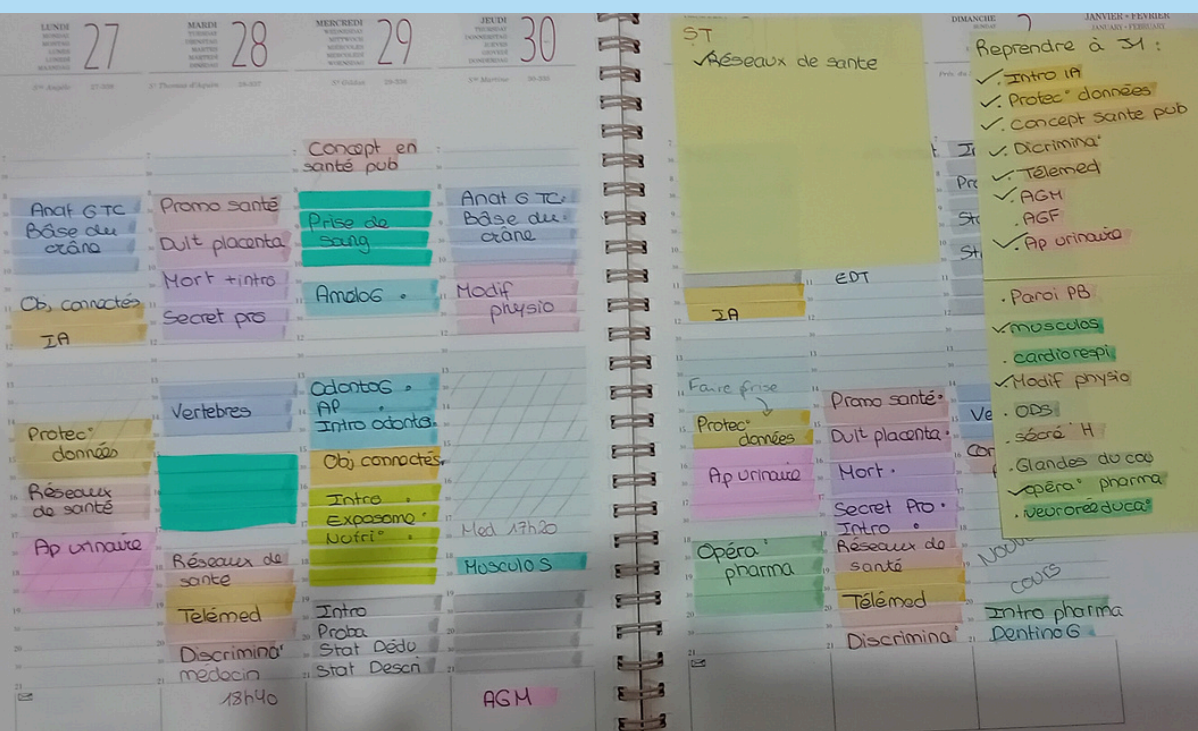 LUNDI
27
MARDI
28
MERCREDI
29
JEUDI
30
DIMANCHE
JANVIER - FÉVRIER
JANUARY - FEBRUARY
Anat GTC
Base du
crâne
Obj connectés
IA
Protec°
données
Réseaux
de santé
Ap urinaire
Promo santé
Duit placenta
Mort + intro
Secret pro
Vertebres
Réseaux de
sante
Télémed
Discrimina°
medecin
18h40
Concept en
santé pub
Prise de
sang
AmeloG .
OdontoG .
AP .
Intro odonto.
Obj connectés.
Intro .
Exposome .
Nutri° .
Intro
Proba
Stat Dédu
Stat Descri
Anat GTC.
Base du.
crâne
Modif
physio
Med 17h20
Musculo S
AGM
ST
✓Réseaux de sante
IA
Faire frise
Protec°
données
Ap urinaire
Opéra°
pharma
EDT
Promo santé.
Duit placenta.
Mort .
Secret Pro .
Intro .
Réseaux de
santé
Télémed
Discrimina°
Pro
Sta
Ve
cours
Intro pharma
Dentino G
Reprendre à J1 :
✓. Intro IA
✓. Protec° données
✓. Concept sante pub
✓. Dicrimina°
✓. Télemed
✓. AGM
. AGF
✓. Ap urinaire
. Paroi PB
✓musculos
. cardiorespi
✓Modif physio
. ODS
. sécré° H
. Glandes du cou
✓opéra° pharma
. neuroréeduca°